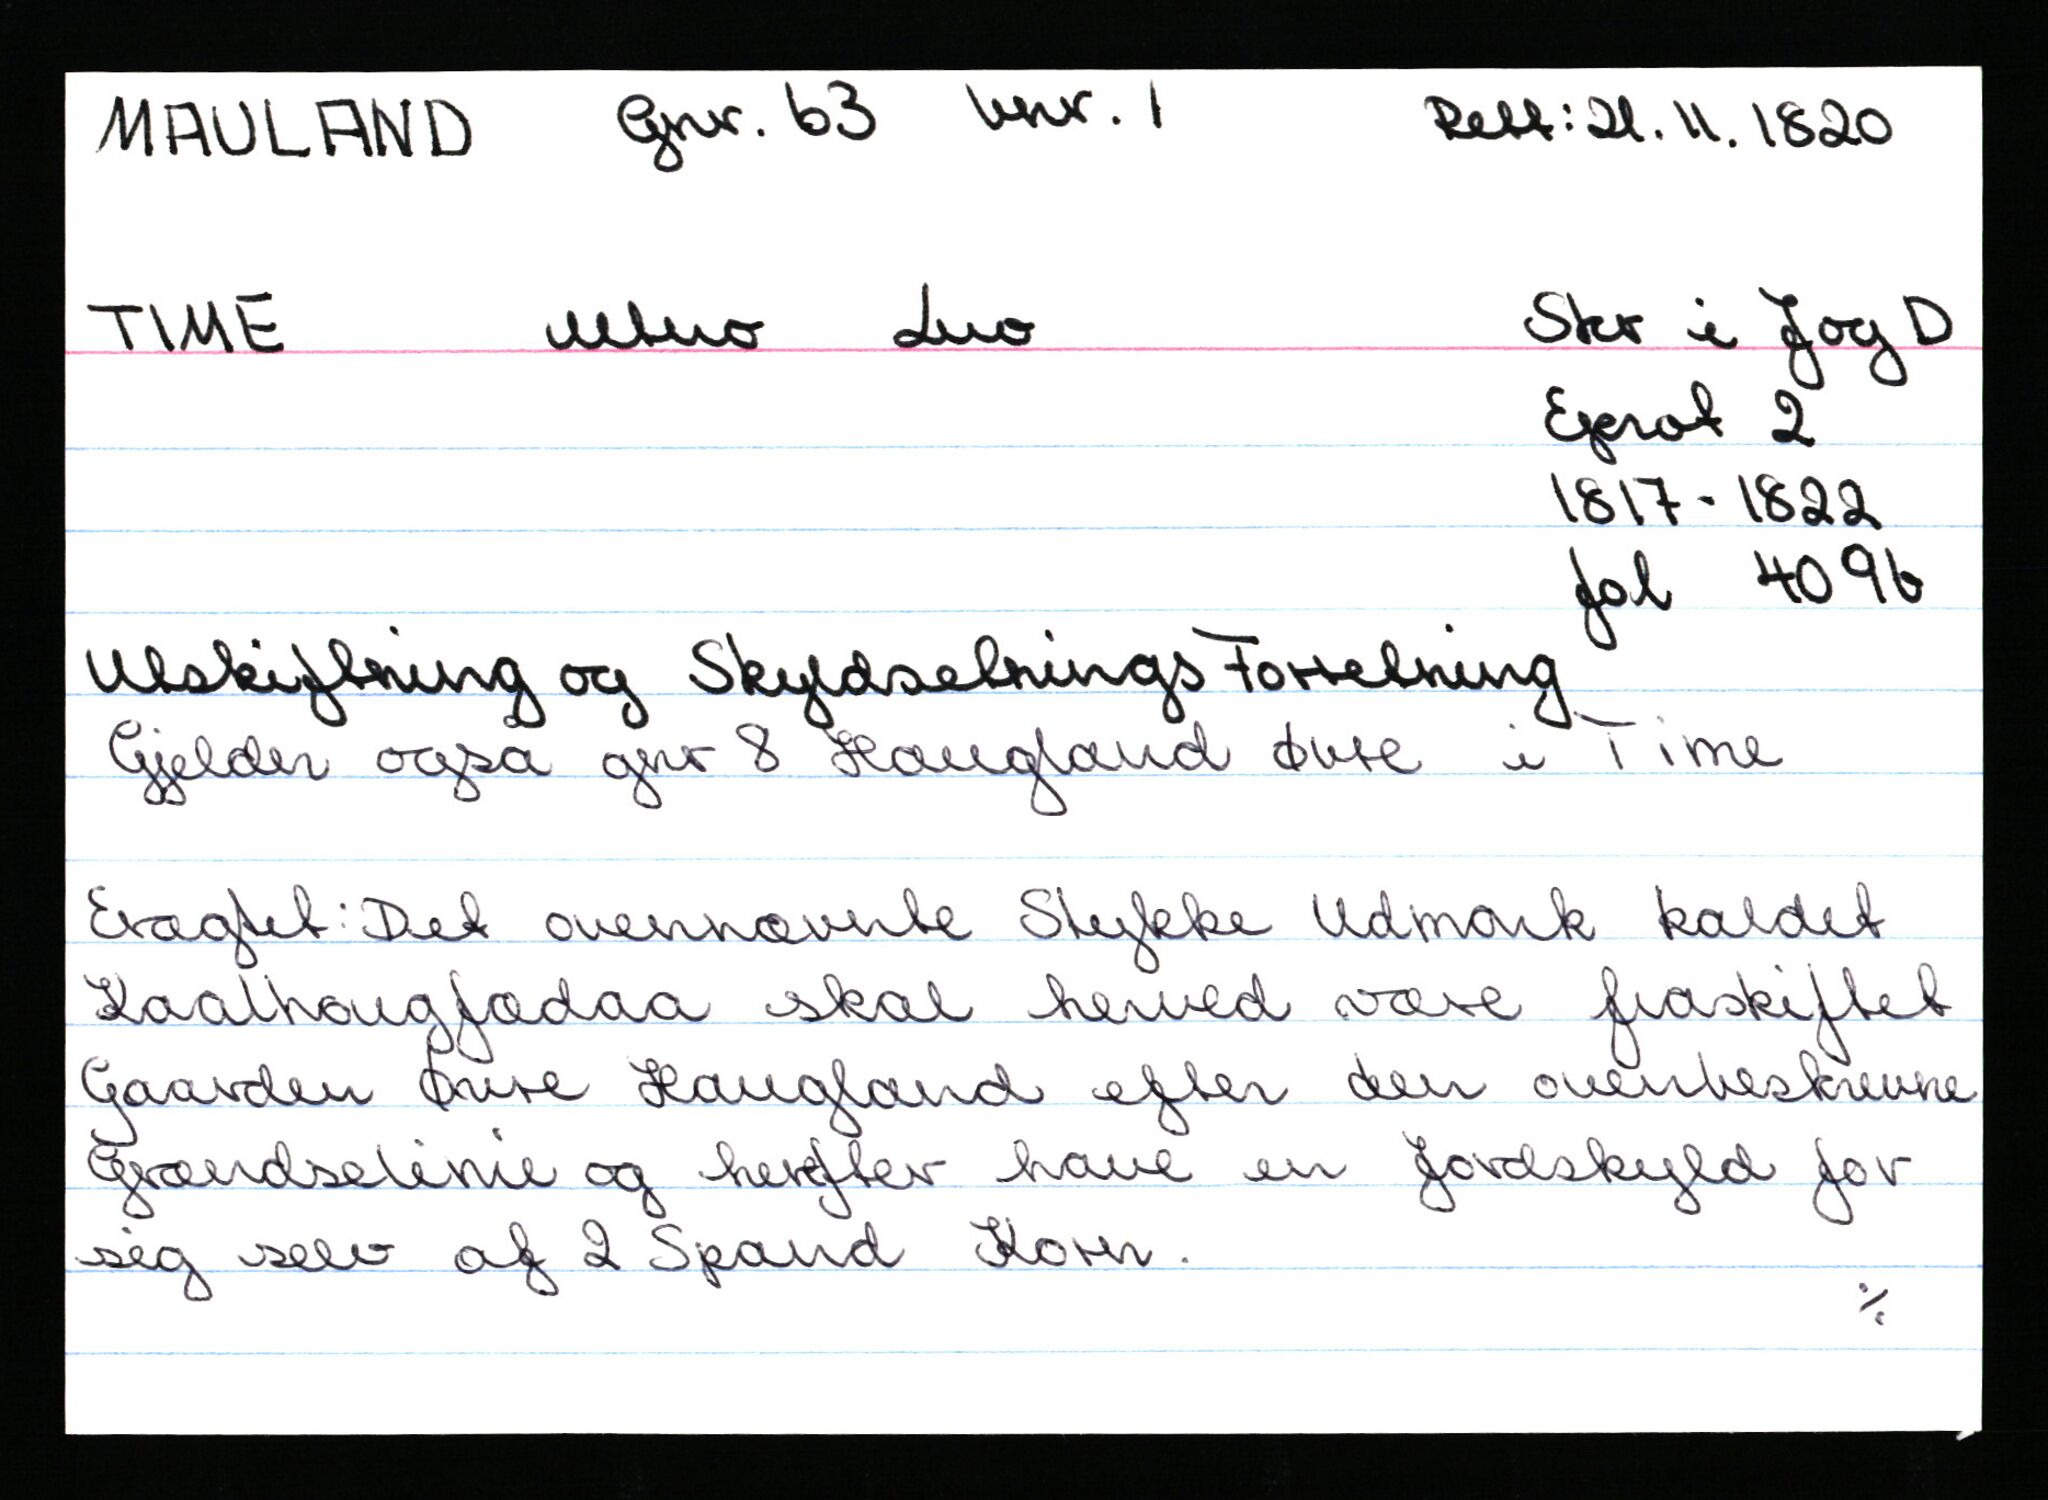 MAULAND Gnr. 63 bnr. 1 Rett: 21.11.1820
TIME Utmo Lmo Skr i J og D
Ekserat 2
1817-1822
fol 409b
Utskiftning og Skyldsetnings Forretning
Gjelder også gnr 8 Haugland Øvre i Time
Eragtet: Det ovennævnte Stykke Udmark kaldet
Kaalhougjædaa skal herved være fraskiftet
Gaarden Øvre Haugland efter den ovenbeskrevne
Grændselinie og herefter have en Jordskyld for
sig selv af 2 Spand Korn.
%